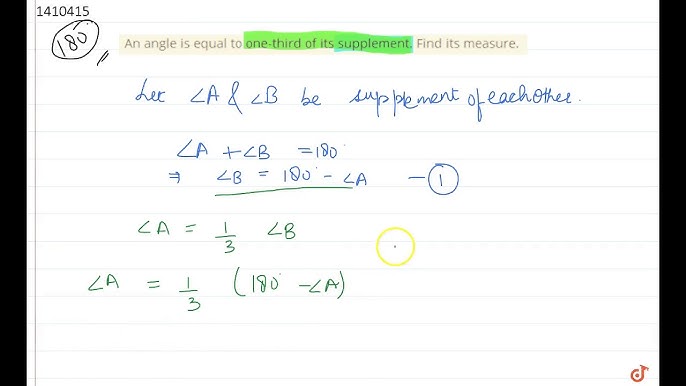 1410415
180°
An angle is equal to one-third of its supplement. Find its measure.
Let ∠A & ∠B be supplement of each other.
∠A + ∠B = 180°
⇒ ∠B = 180° - ∠A - ①
∠A = 1/3 ∠B
∠A = 1/3 (180° - ∠A)